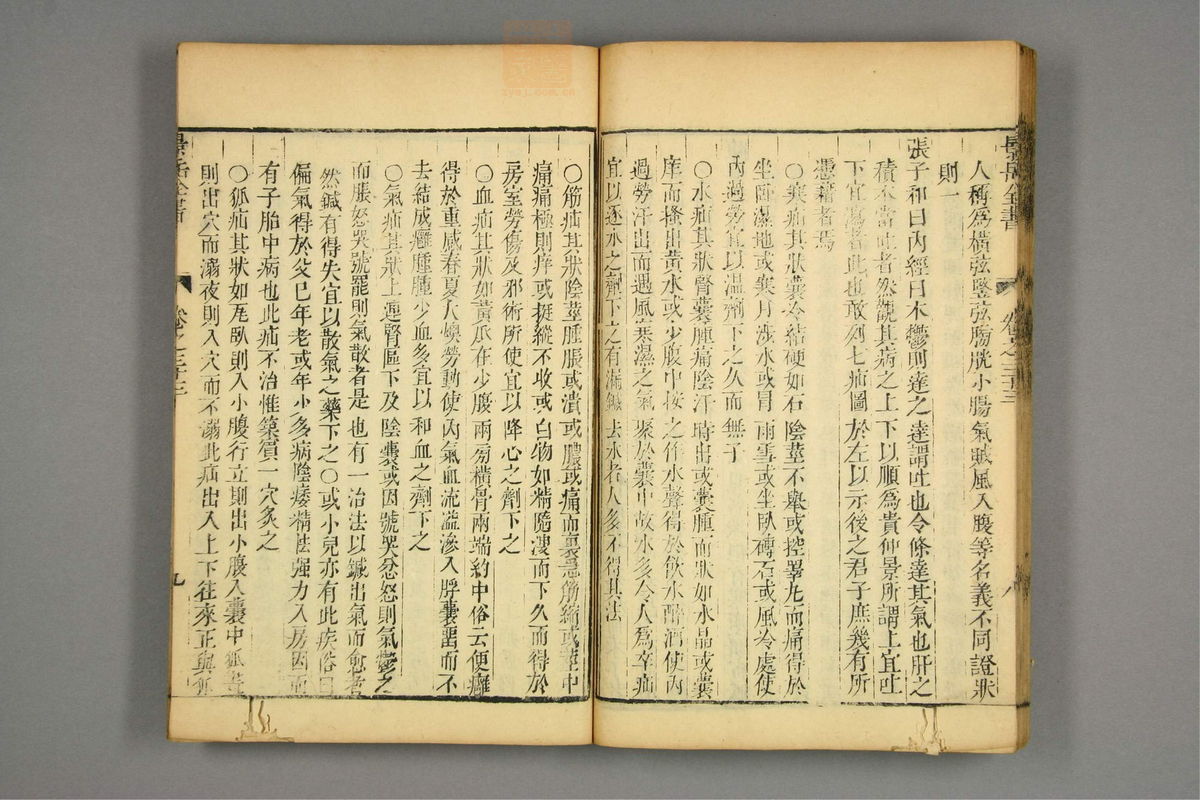 景岳全書
卷之三十三
八
人稱為橫弦豎弦膀胱小腸氣賊風入腹等名義不同證狀
則一
張子和曰內經曰木鬱則達之達謂吐也令條達其氣也肝之
積本當吐者然觀其病之上下以順為貴仲景所謂上宜吐
下宜瀉者此也敢列七疝圖於左以示後之君子庶幾有所
憑藉者焉
○寒疝其狀囊冷結硬如石陰莖不舉或控睪丸而痛得於
坐臥濕地或寒月涉水或冒雨雪或坐臥磚石或風冷處使
內過勞宜以溫劑下之久而無子
○水疝其狀腎囊腫痛陰汗時出或囊腫而狀如水晶或囊
痒而搔出黃水或少腹中按之作水聲得於飲水醉酒使內
過勞汗出而遇風寒濕之氣聚於囊中故水多令人為卒疝
宜以逐水之劑下之有漏鍼去水者人多不得其法
○筋疝其狀陰莖腫脹或潰或膿或痛而裏急筋縮或莖中
痛痛極則痒或挺縱不收或白物如精隨溲而下久而得於
房室勞傷及邪術所使宜以降心之劑下之
○血疝其狀如黃瓜在少腹兩旁橫骨兩端約中俗云便癰
得於重感春夏大燠勞動使內氣血流溢滲入脬囊留而不
去結成癰腫膿少血多宜以和血之劑下之
○氣疝其狀上連腎區下及陰囊或因號哭忿怒則氣鬱之
而脹怒哭號罷則氣散者是也有一治法以鍼出氣而愈者
然鍼有得失宜以散氣之藥下之○或小兒亦有此疾俗曰
偏氣得於父已年老或年少多病陰痿精怯強力入房因而
有子胎中病也此疝不治惟築賓一穴灸之
○狐疝其狀如瓦臥則入小腹行立則出小腹入囊中狐晝
則出穴而溺夜則入穴而不溺此疝出入上下往來正與狐
景岳全書
卷之三十三
九